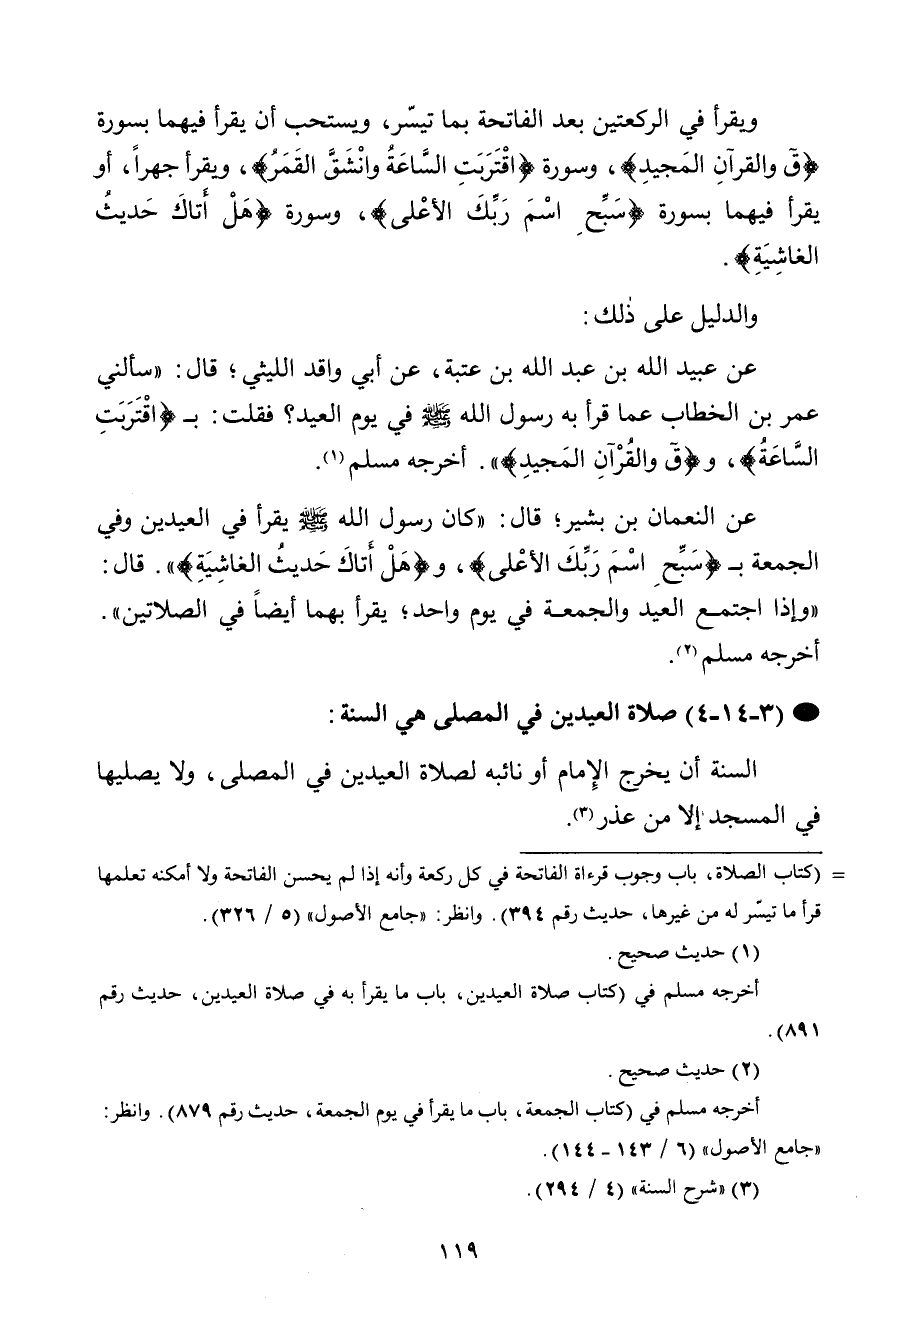 ويقرأ في الركعتين بعد الفاتحة بما تيسّر، ويستحب أن يقرأ فيهما بسورة
﴿قۤ والقرآنِ المَجيدِ﴾، وسورة ﴿اقْتَرَبَتِ السَّاعَةُ وانْشَقَّ القَمَرُ﴾، ويقرأ جهراً، أو
يقرأ فيهما بسورة ﴿سَبِّحِ اسْمَ رَبِّكَ الأعْلى﴾، وسورة ﴿هَلْ أَتاكَ حَديثُ
الغاشِيَةِ﴾.
والدليل على ذٰلك:
عن عبيد الله بن عبد الله بن عتبة، عن أبي واقد الليثي؛ قال: «سألني
عمر بن الخطاب عما قرأ به رسول الله ﷺ في يوم العيد؟ فقلت: بـ ﴿اقْتَرَبَتِ
السَّاعَةُ﴾، و﴿قۤ والقُرْآنِ المَجيدِ﴾». أخرجه مسلم(١).
عن النعمان بن بشير؛ قال: «كان رسول الله ﷺ يقرأ في العيدين وفي
الجمعة بـ ﴿سَبِّحِ اسْمَ رَبِّكَ الأعْلى﴾، و﴿هَلْ أَتاكَ حَديثُ الغاشِيَةِ﴾». قال:
«وإذا اجتمع العيد والجمعة في يوم واحد؛ يقرأ بهما أيضاً في الصلاتين».
أخرجه مسلم(٢).
● (٣-١٤-٤) صلاة العيدين في المصلى هي السنة:
السنة أن يخرج الإمام أو نائبه لصلاة العيدين في المصلى، ولا يصليها
في المسجد إلا من عذر(٣).
= (كتاب الصلاة، باب وجوب قرءاة الفاتحة في كل ركعة وأنه إذا لم يحسن الفاتحة ولا أمكنه تعلمها
قرأ ما تيسّر له من غيرها، حديث رقم ٣٩٤). وانظر: «جامع الأصول» (٥ / ٣٢٦).
(١) حديث صحيح.
أخرجه مسلم في (كتاب صلاة العيدين، باب ما يقرأ به في صلاة العيدين، حديث رقم
٨٩١).
(٢) حديث صحيح.
أخرجه مسلم في (كتاب الجمعة، باب ما يقرأ في يوم الجمعة، حديث رقم ٨٧٩). وانظر:
«جامع الأصول» (٦ / ١٤٣ - ١٤٤).
(٣) «شرح السنة» (٤ / ٢٩٤).
١١٩